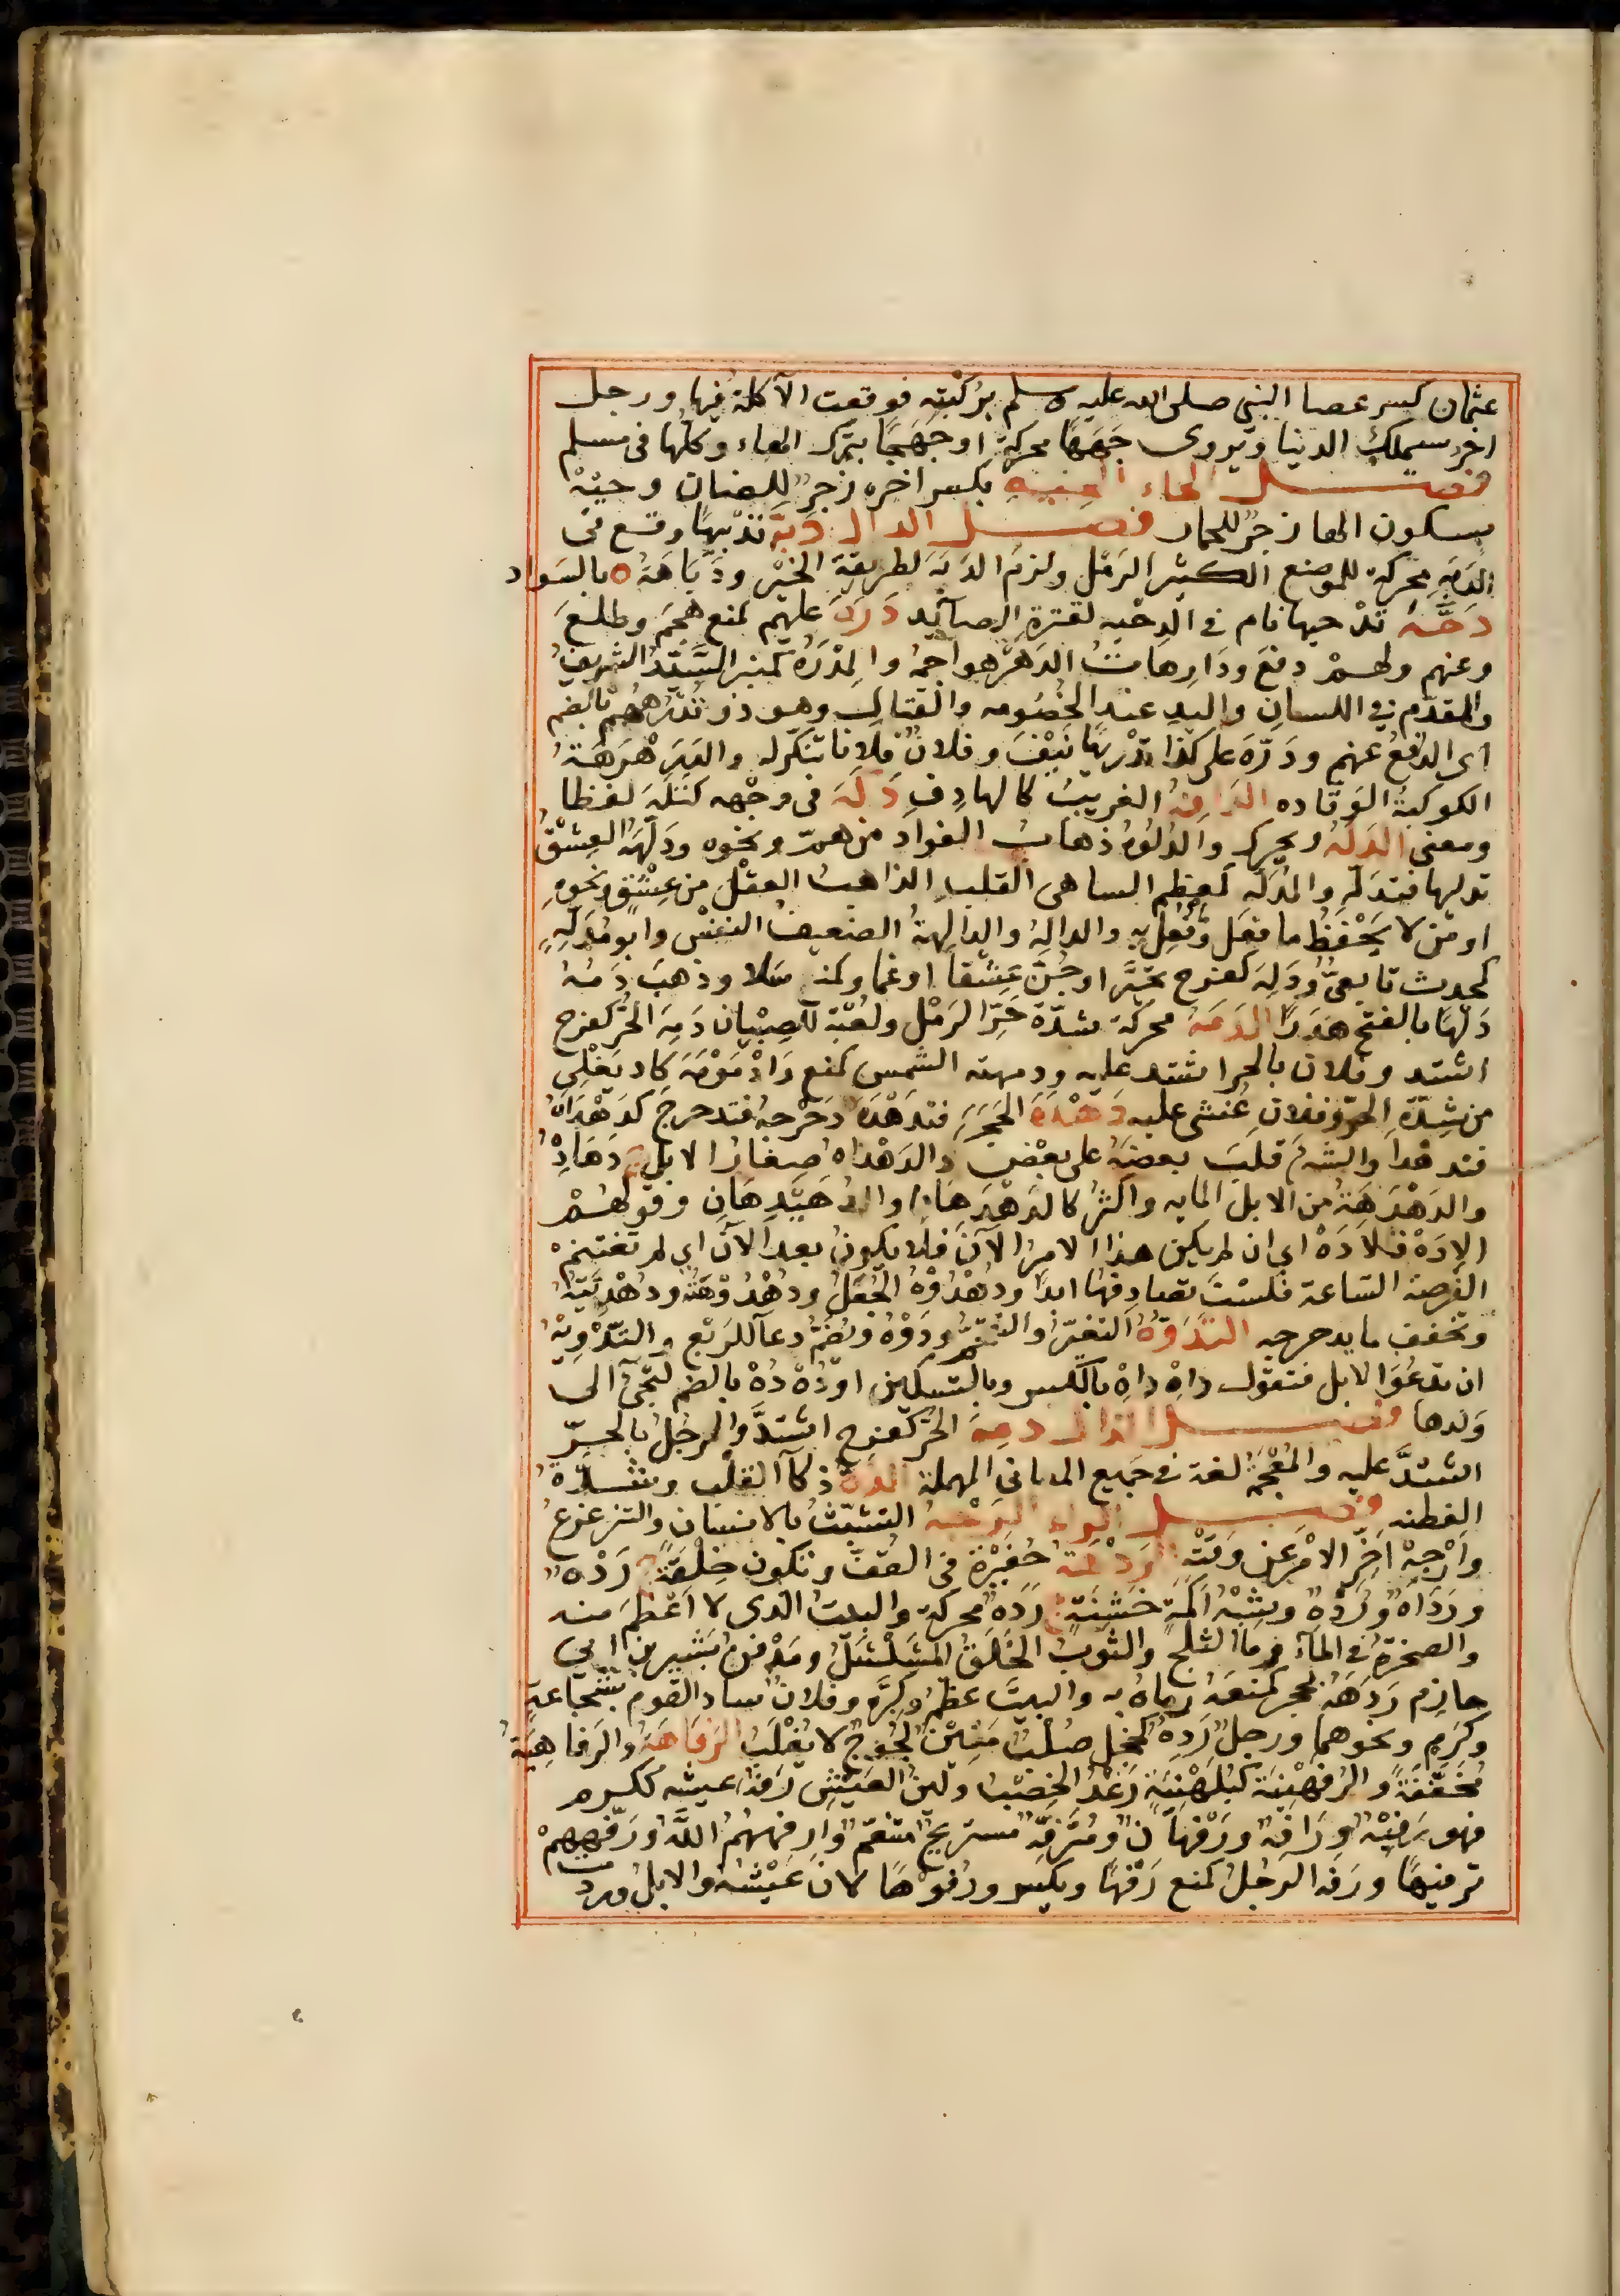 عثمان كسر عصا النبي صلى الله عليه وسلم بركبته فوقعت الآكلة فيها ورجل
اخر سيملك الدنيا ويروى جَهَهَا محركة او جَهْجَا بترك الهاء وكلها في مسلم
فصل الحاء الحيه بكسر اخره زجر للضان وحيْهْ
بسكون الها زجر للحمار فصل الدال دَبَّه تَدْبيهًا وقع في
الدَبَهِ محركة للموضع الكثير الرَمْل ولزم الدَبَه لطريقة الخَيْر ودَبَاهَةُ ه بالسواد
دَحَّهُ تَدْحيها نام في الدحْيه لقترة الصآئد دَرَهَ عليهم كمنع هجمَ وطلعَ
وعنهم ولهمْ دفعَ ودَارِهَاتُ الدَهْر هواجمهُ والمِدْرَهُ كمنبر السَيّدُ الشريفُ
والمقدّم في اللسان واليد عند الخُصُومه والقتالِ وهو ذو تُدْرَهِهُمْ بالضم
اى الدافعُ عنهم ودَرَّهَ على كذا تَدْريهًا نَيَّفَ وفلانٌ فلانا تنكرله والدَرَهْرَهَةُ
الكوكبةُ الوَقّاده الدافِهُ الغريبُ كالهادِفِ دَكَهَ في وجْهه كنَكَهَ لفظا
ومعنى الدَلَهُ ويحرك والدُلُوهُ ذهابُ الفواد من همّ ونحوه ودَلَّهَهُ العِشْقُ
تدليها فتدلّهَ والمُدَلَّه كمعظم الساهى القلب الذاهبُ العقْل من عِشْقٍ ونحوهِ
او مَن لا يَحْفَظُ ما فَعَل وفُعِل به والدالِهُ والدالِهَةُ الضعيفُ النفْس وابو مُدَلِّهٍ
كمحدث تابعىٌّ ودَلِهَ كفرح تحيَّر او جُنّ عِشْقًا او غما وكمنع سَلا وذهبَ دَمُهُ
دَلْهًا بالفتح هَدَرًا الدَمَهُ محركة شدّة حَرّ الرَمْل ولُعْبَة للصِبْيان دَمِهَ الحَرُّ كفرح
اشتد وفلان بالحر اشتد عليه ودمهته الشمس كمنع وَادْمَوْمَهَ كاد يَغْلِى
من شِدّةِ الحرّ وفلانِ غُشى عليه دَهْدَهَ الحَجَرَ فتدَهْدَهَ دَحْرَجهُ فتدحرجَ كدَهْدَاهُ
فتدهْدا والشىءَ قلبَ بعضَهُ على بعْض والدَهْدَاهُ صِغارُ الابل ج دَهَادِهُ
والدَهْدَهَةُ من الابل المايه واكثرُ كالدَهْدَهَانِ والدُهَيْدِهَانِ وقولهُمْ
الادَهْ فلادَهْ اى ان لم يكن هذا الامرُ الآنَ فلا يكونُ بعد الآنَ اى لم تغتنمْ
الفُرصة الساعة فلسْتَ تصادِفها ابدًا ودُهْدُوْهُ الجُعَلِ ودُهْدُوْهَتُهُ ودُهْدِيَّتُهُ
وتخفف ما يدحرجه التَدَوُّهُ التغيّرُ والتقحُّمُ ودَوْهُ ويُضَمُّ دعآ للرُبَعِ والتَدْوِيهُ
ان تدعُوَا الابل فتقول داهِ داهِ بالكسر وبالتسكين او دُهْ دُهْ بالضم لتجىء الى
وَلدها فصل الذال ذمِهَ الحَرُّ كفرح اشتدَّ والرجُلُ بالحرّ
اشتدَّ عليه والمُعْجَمَهُ لغة في جميع المعانى المهملة الذِهُ ذكآ القلْب وشدّةُ
الفطنه فصل الراء الرَجْهُ التشبّثُ بالانسان والتزعزعُ
وارْجَهْ اخّر الامْرَ عن وقتْهِ الرَدْهَةُ حُفَيْرَة في القفّ وتكون خِلْقَةً ج رَدْهٌ
ورِدَاهٌ ورُدَّهٌ وشِبْهُ اكَمَةٍ خَشِنَةٍ ج رَدَهٌ محركة والبيتُ الذى لا اعْظمَ منه
والصخرة في المآء وما الثلج والثوبُ الخَلَقُ المتسَلْسِلُ ومَدْفنُ بَشير بن ابى
حازم رَدَهَهُ بحجر كمنَعَهُ رماهُ به والبيتَ عظّمَهُ وكبَّره وفلانٌ ساد القوم بشجاعةٍ
وكَرَمٍ ونحوهما ورجلٌ رَدِهٌ كخجل صُلْبٌ مَتينٌ لَجُوجٌ لا يُغْلَبُ الرَفاهَةُ والرَفاهِيَةُ
مُخَفَّفَةً والرُفَهْنِيَةُ كبُلَهْنِيَةٍ رَغْدُ الخِصْبِ ولينُ العَيْشِ رَفُهَ عيشه ككرم
فهو رَفِيْهٌ ورَافِهٌ ورَفْهَانٌ ومُتَرَفِّهٌ مستريحٌ متنعم وارفههُمُ اللَّهُ ورَفَّههُمْ
ترفيهًا ورفه الرجُلُ كمنع رَفْهًا ويكسر ورُفُوْهًا لانَ عَيْشُهُ والابلُ وردت